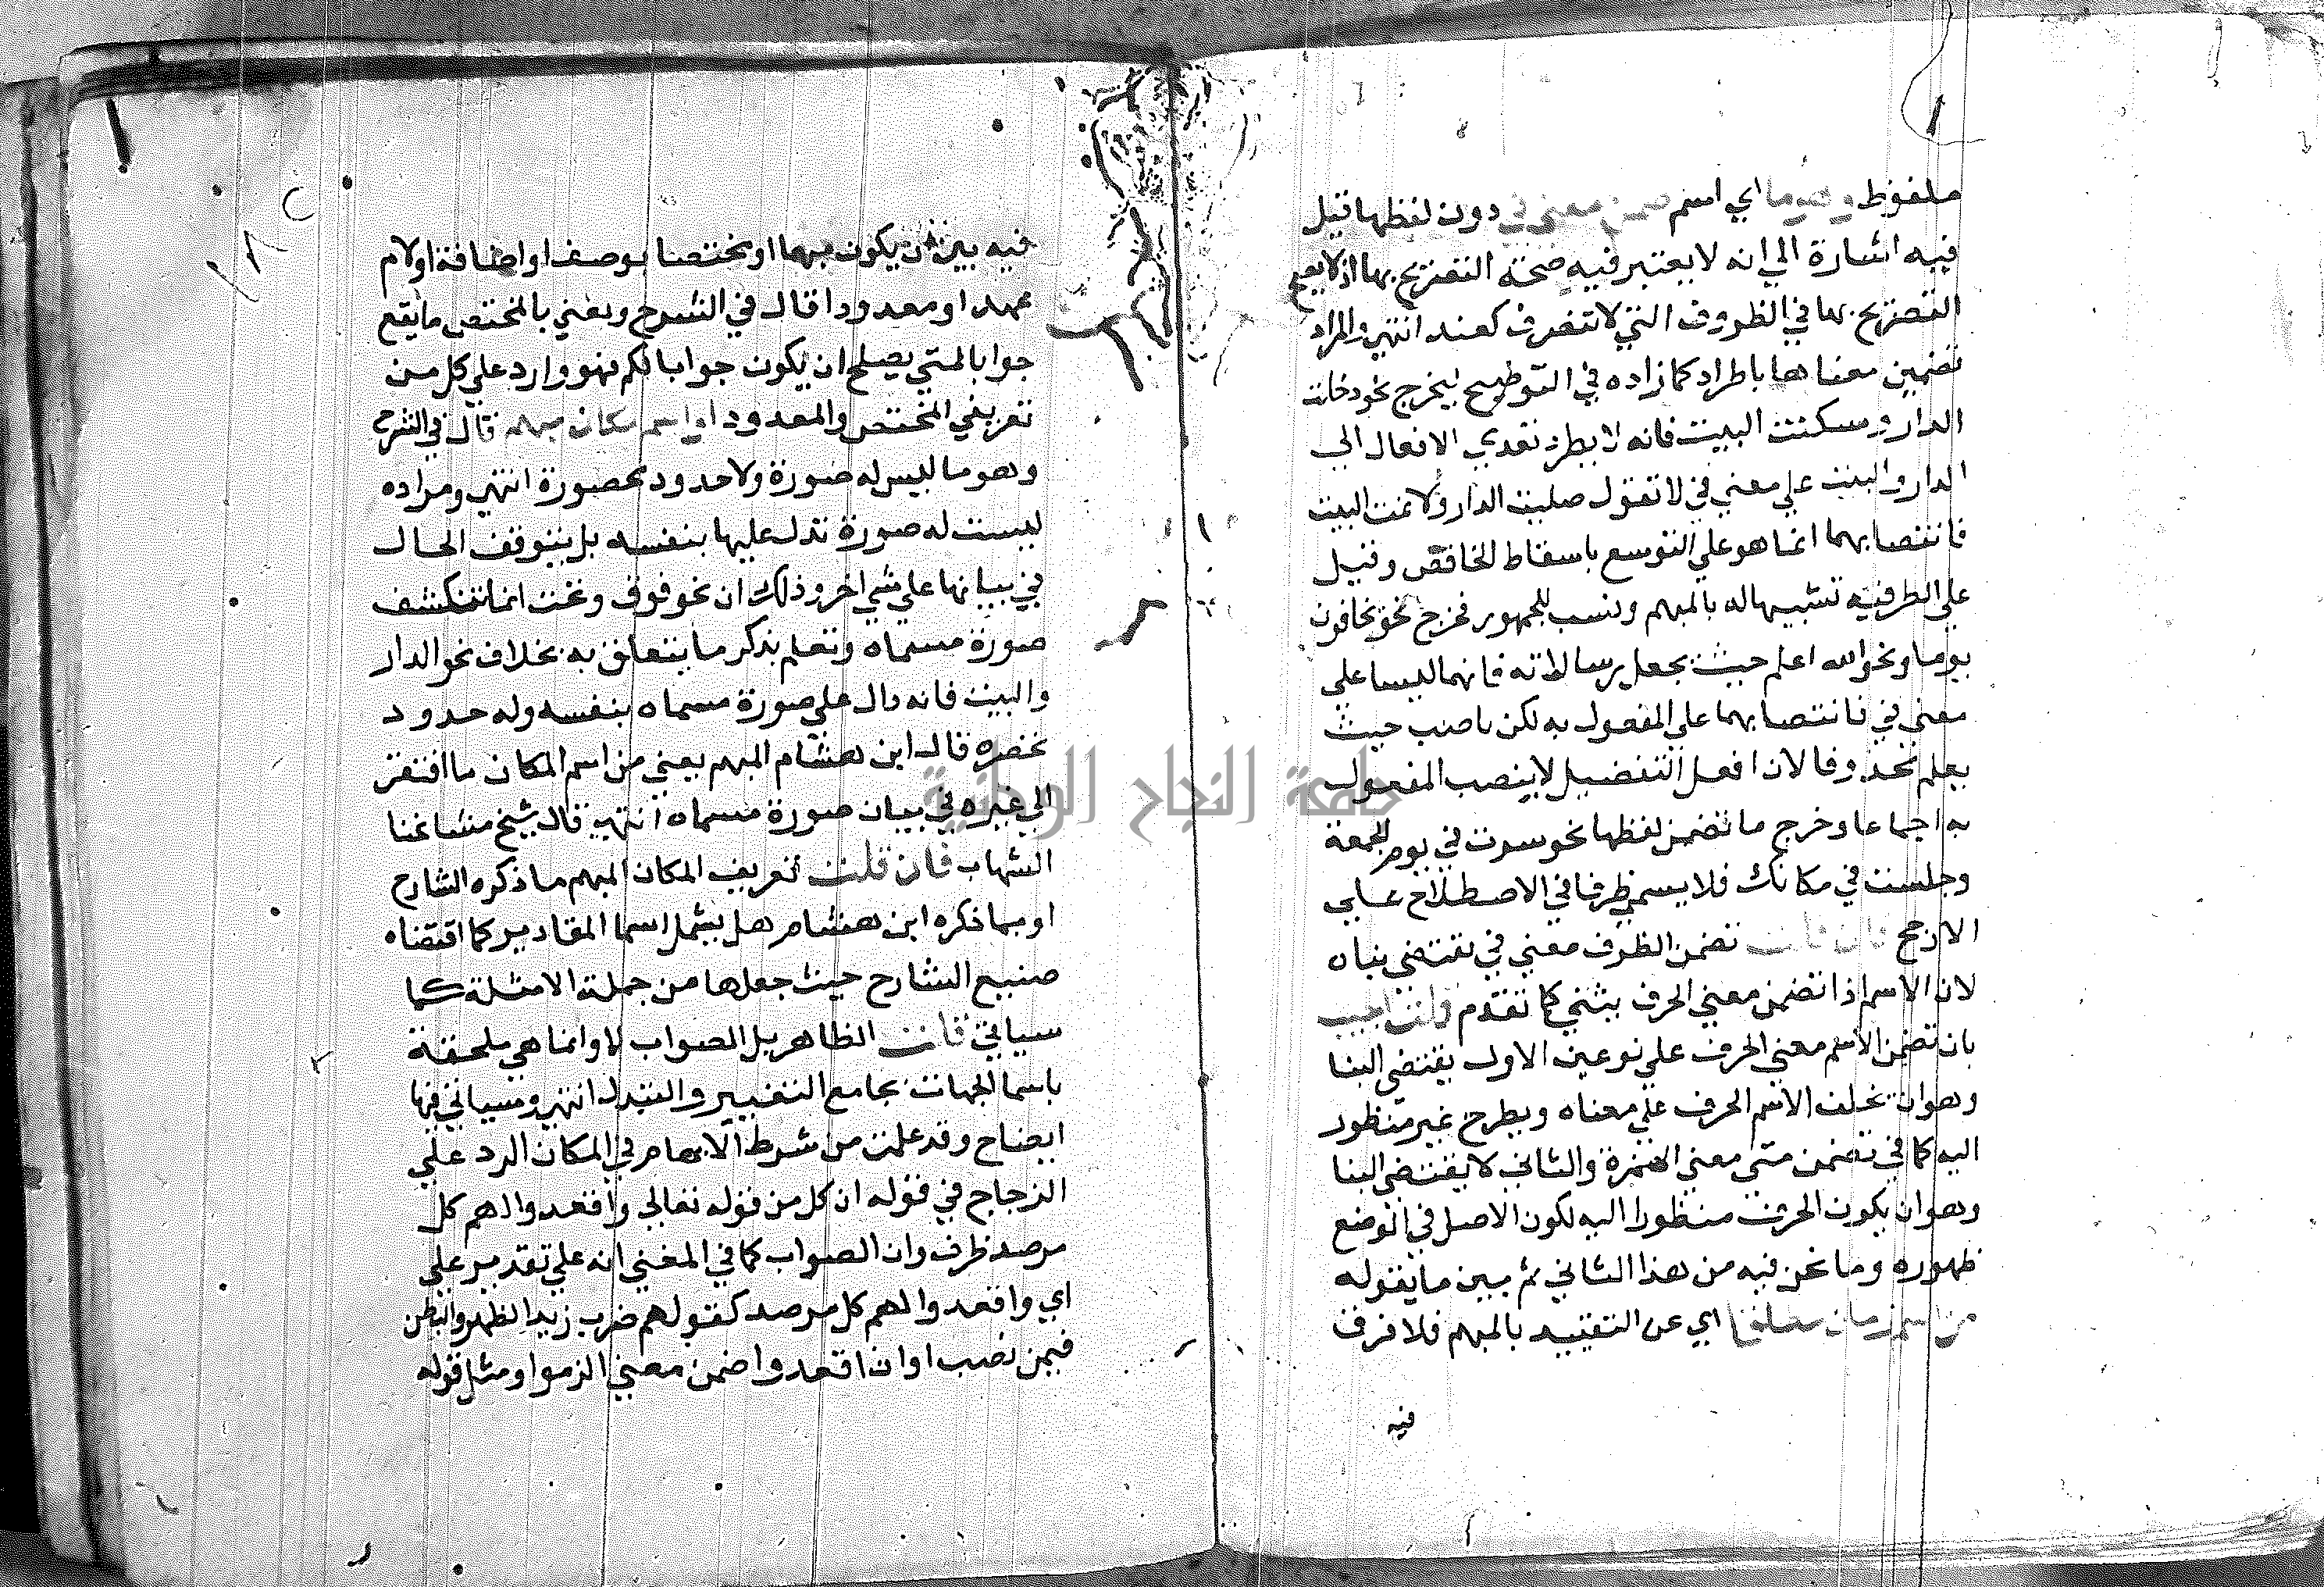 ملفوظ وهو ما اي اسم ضمن معني في دون لفظها قيل
فيه اشارة الي انه لا يعتبر فيه صحة التصريح بها اذ لا يصح
التصريح بها في الظروف التي لا تتصرف كعند انتهي والمراد
تضمين معناها باطراد كما زاده في التوضيح ليخرج نحو دخلت
الدار وسكنت البيت فانه لا يطرد تعدي الافعال الي
الدار والبيت علي معني في لا تقول صليت الدار ولا نمت البيت
فانتصابهما انما هو علي التوسع باسقاط الخافض وقيل
علي الظرفية تشبيها له بالمبهم ونسب للجمهور فخرج نحو يخافون
يوما ونحو الله اعلم حيث يجعل رسالاته فانهما ليسا علي
معني في فانتصابهما علي المفعول به لكن ناصب حيث
يعلم محذوفا لان افعل التفضيل لا ينصب المفعول
به اجماعا وخرج ما تضمن لفظها نحو سرت في يوم الجمعة
وجلست في مكانك فلا يسمي ظرفا في الاصطلاح علي
الارجح فان قلت تضمن الظرف معني في يقتضي بناه
لان الاسم اذا تضمن معني الحرف يبني كما تقدم قلت اجيب
بان تضمن الاسم معني الحرف علي نوعين الاول يقتضي البنا
وهو ان يخلف الاسم الحرف علي معناه ويطرح غير منظور
اليه كما في تضمن متي معني الهمزة والثاني لا يقتضي البنا
وهو ان يكون الحرف منظورا اليه لكون الاصل في الوضع
ظهوره وما نحن فيه من هذا الثاني ثم بين ما يقوله
من اسم زمان مطلقا اي عن التقييد بالمبهم فلا فرق
فيه
فيه بين ان يكون مبهما او مختصا بوصف او اضافة او لام
عهد او معدودا قال في الشرح ويعني بالمختص ما يقع
جوابا لمتي يصلح ان يكون جوابا لكم فهو وارد علي كل من
تعريفي المختص والمعدود او اسم مكان مبهم قال في الشرح
وهو ما ليس له صورة ولا حدود محصورة انتهي ومراده
ليست له صورة تدل عليها بنفسه بل يتوقف الحال
في بيانها علي شي اخر وذلك ان نحو فوق وتحت انما تنكشف
صورة مسماه وتعلم بذكر ما يتعلق به بخلاف نحو الدار
والبيت فانه دال علي صورة مسماه بنفسه وله حدود
تحصره قال ابن هشام المبهم يعني من اسم المكان ما افتقر
الي غيره في بيان صورة مسماه انتهي قال شيخ مشايخنا
الشهاب فان قلت تعريف المكان المبهم ما ذكره الشارح
او بما ذكره ابن هشام هل يشمل اسما المقادير كما اقتضاه
صنيع الشارح حيث جعلها من جملة الامثلة كما
سياتي قلت الظاهر بل الصواب لا وانما هي ملحقة
باسما الجهات بجامع التغيير والتبدل انتهي وسياتي فيها
ايضاح وقد علمت من شرط الابهام في المكان الرد علي
الزجاج في قوله ان كل من قوله تعالي واقعدوا لهم كل
مرصد ظرف وان الصواب كما في المغني انه علي تقدير علي
اي واقعدوا لهم كل مرصد كقولهم ضرب زيد الظهر والبطن
فيمن نصب او ان اقعدوا ضمن معني الزموا ومثل قوله
جامعة النجاح الوطنية